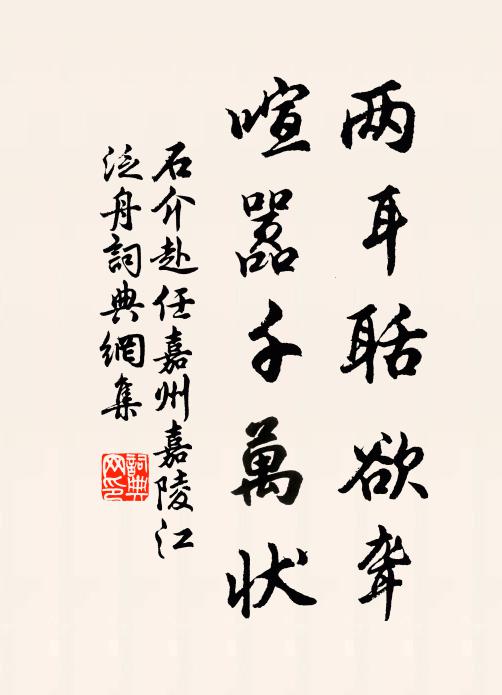 两耳聒欲聋
喧嚣千萬状
石介赴任嘉州嘉陵江
泛舟詞典網集
詞典網印